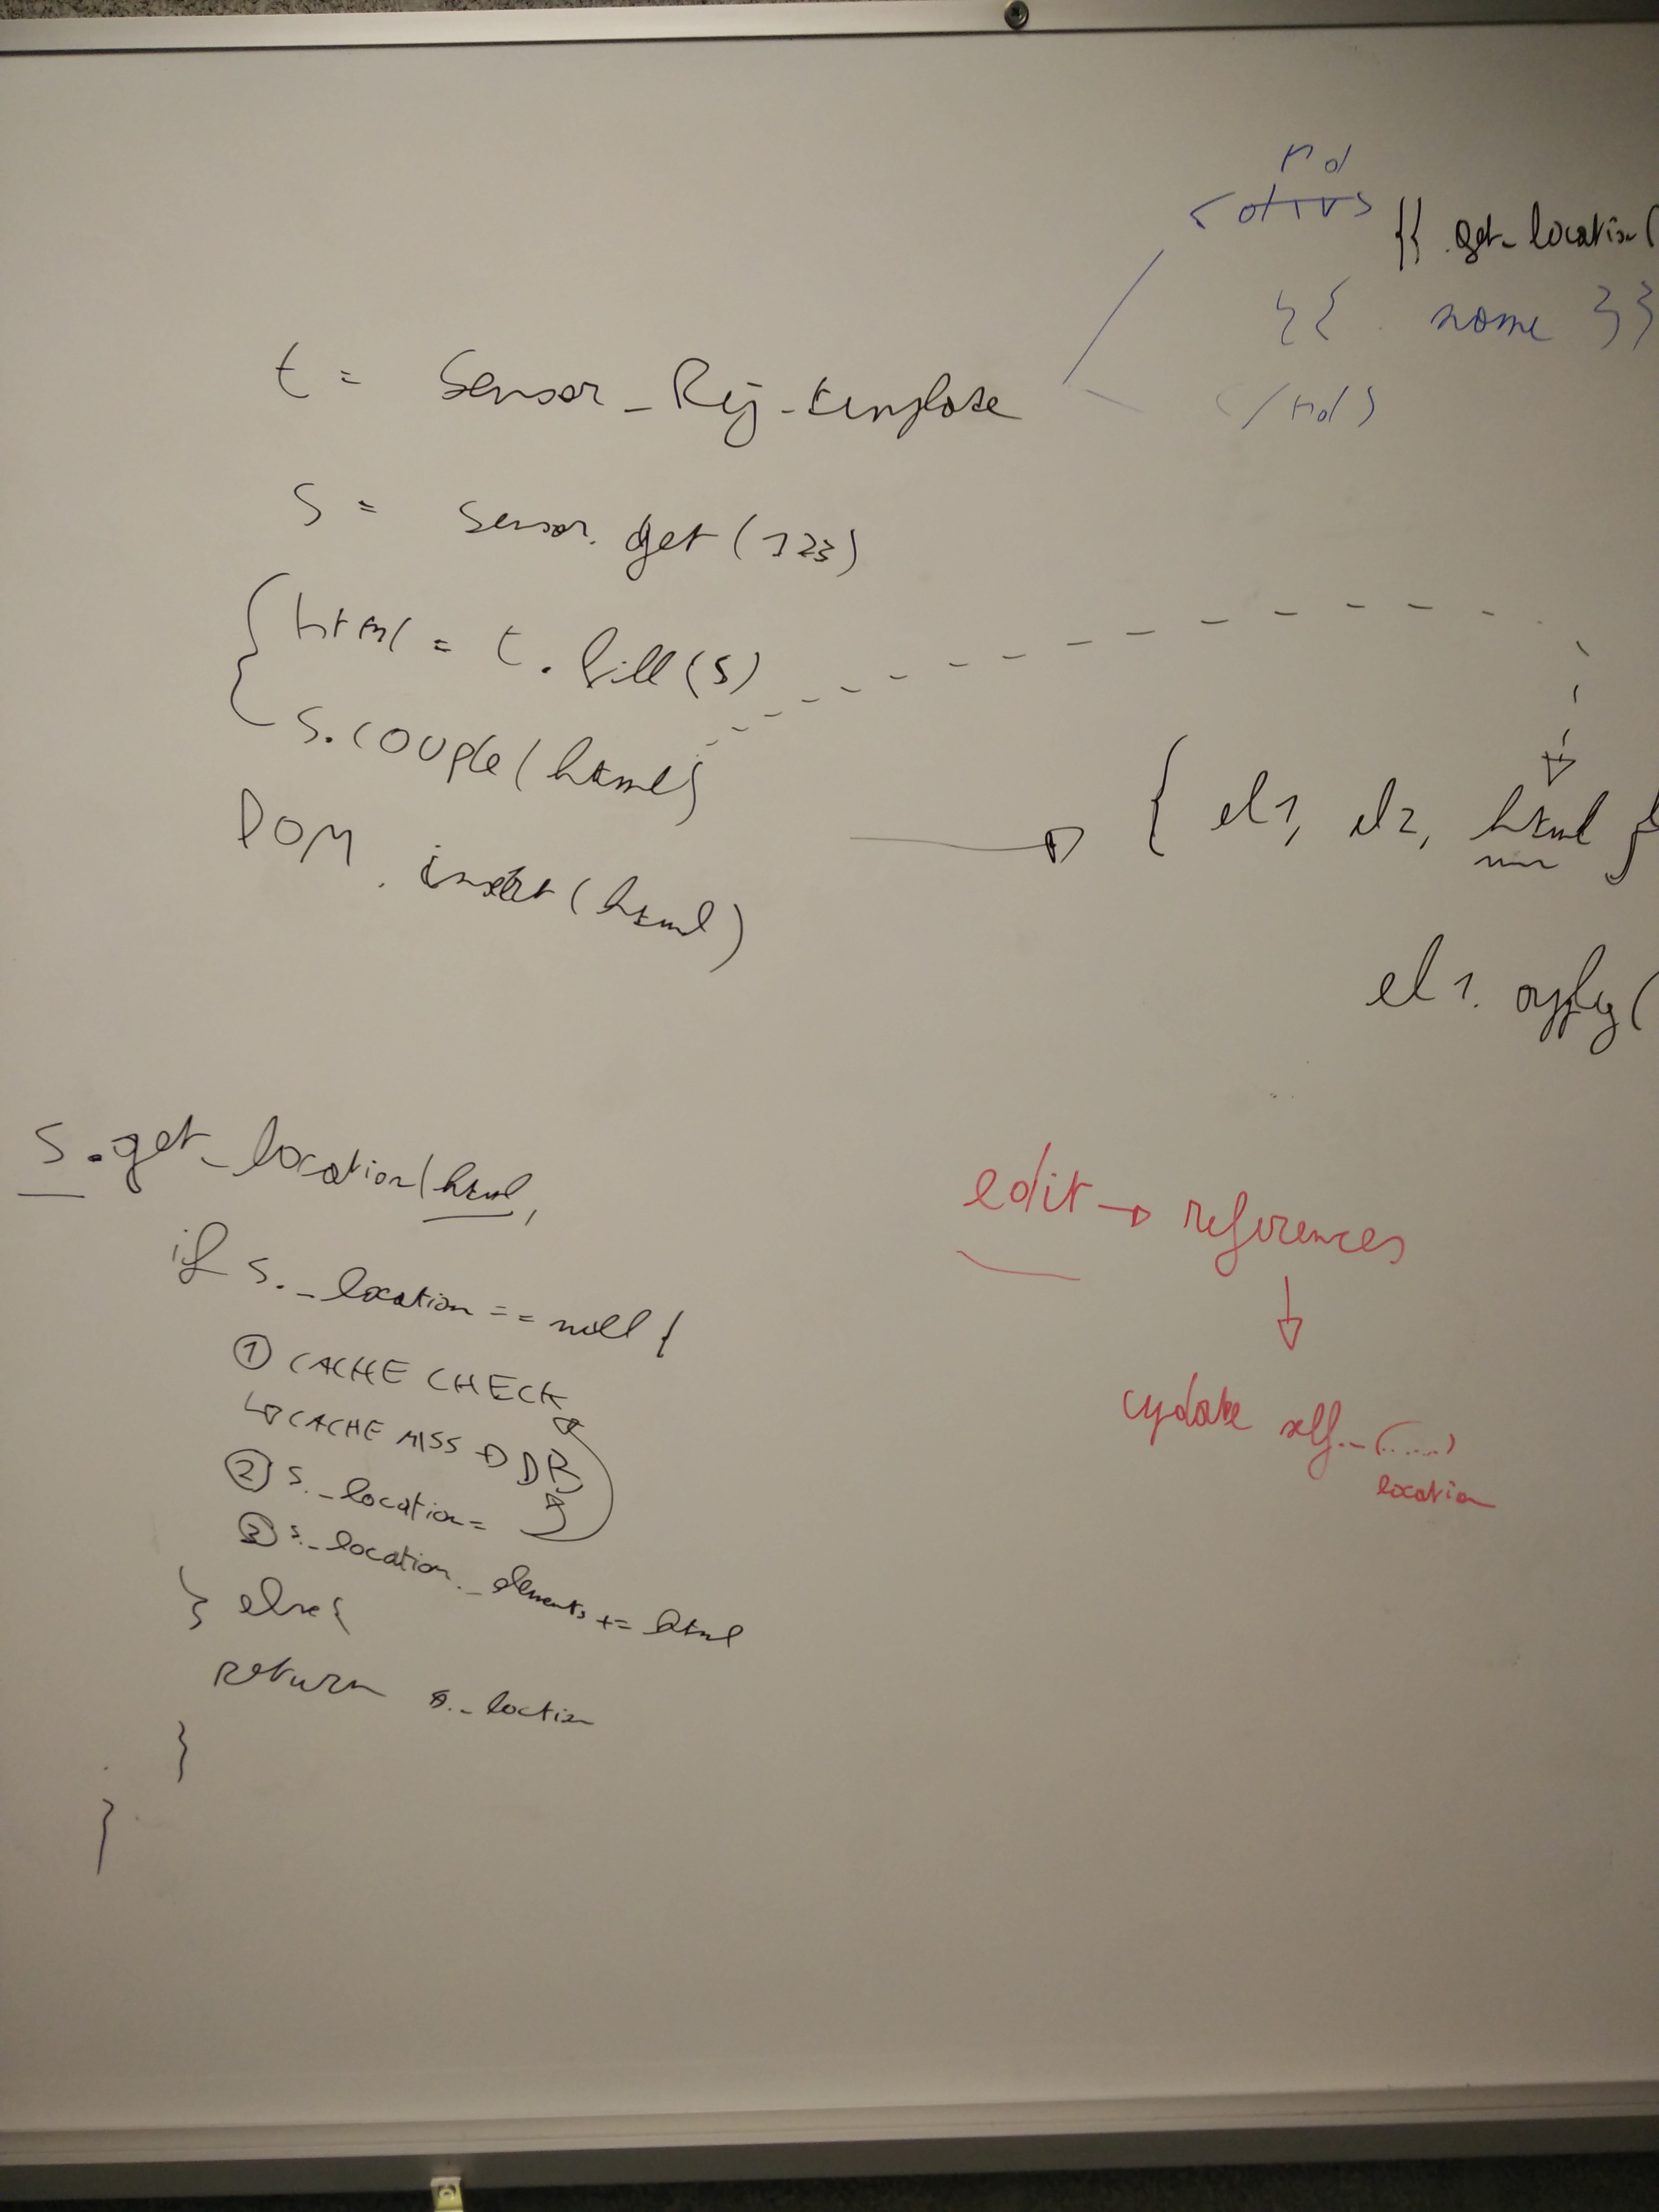 nd
{{ get_location(
}{ . name }}
</nd>
t = Sensor_Rij_template
s = Sensor.get(123)
html = t.fill(s)
s.couple(html)
{ el1, el2, html }
DOM.insert(html)
el1.apply(
s.get_location(html,
if s._location == null {
① CACHE CHECK
CACHE MISS → DB
② s._location =
③ s._location._elements += html
} else {
return s._loction
}
}
edit → references
update self._(.....)
location